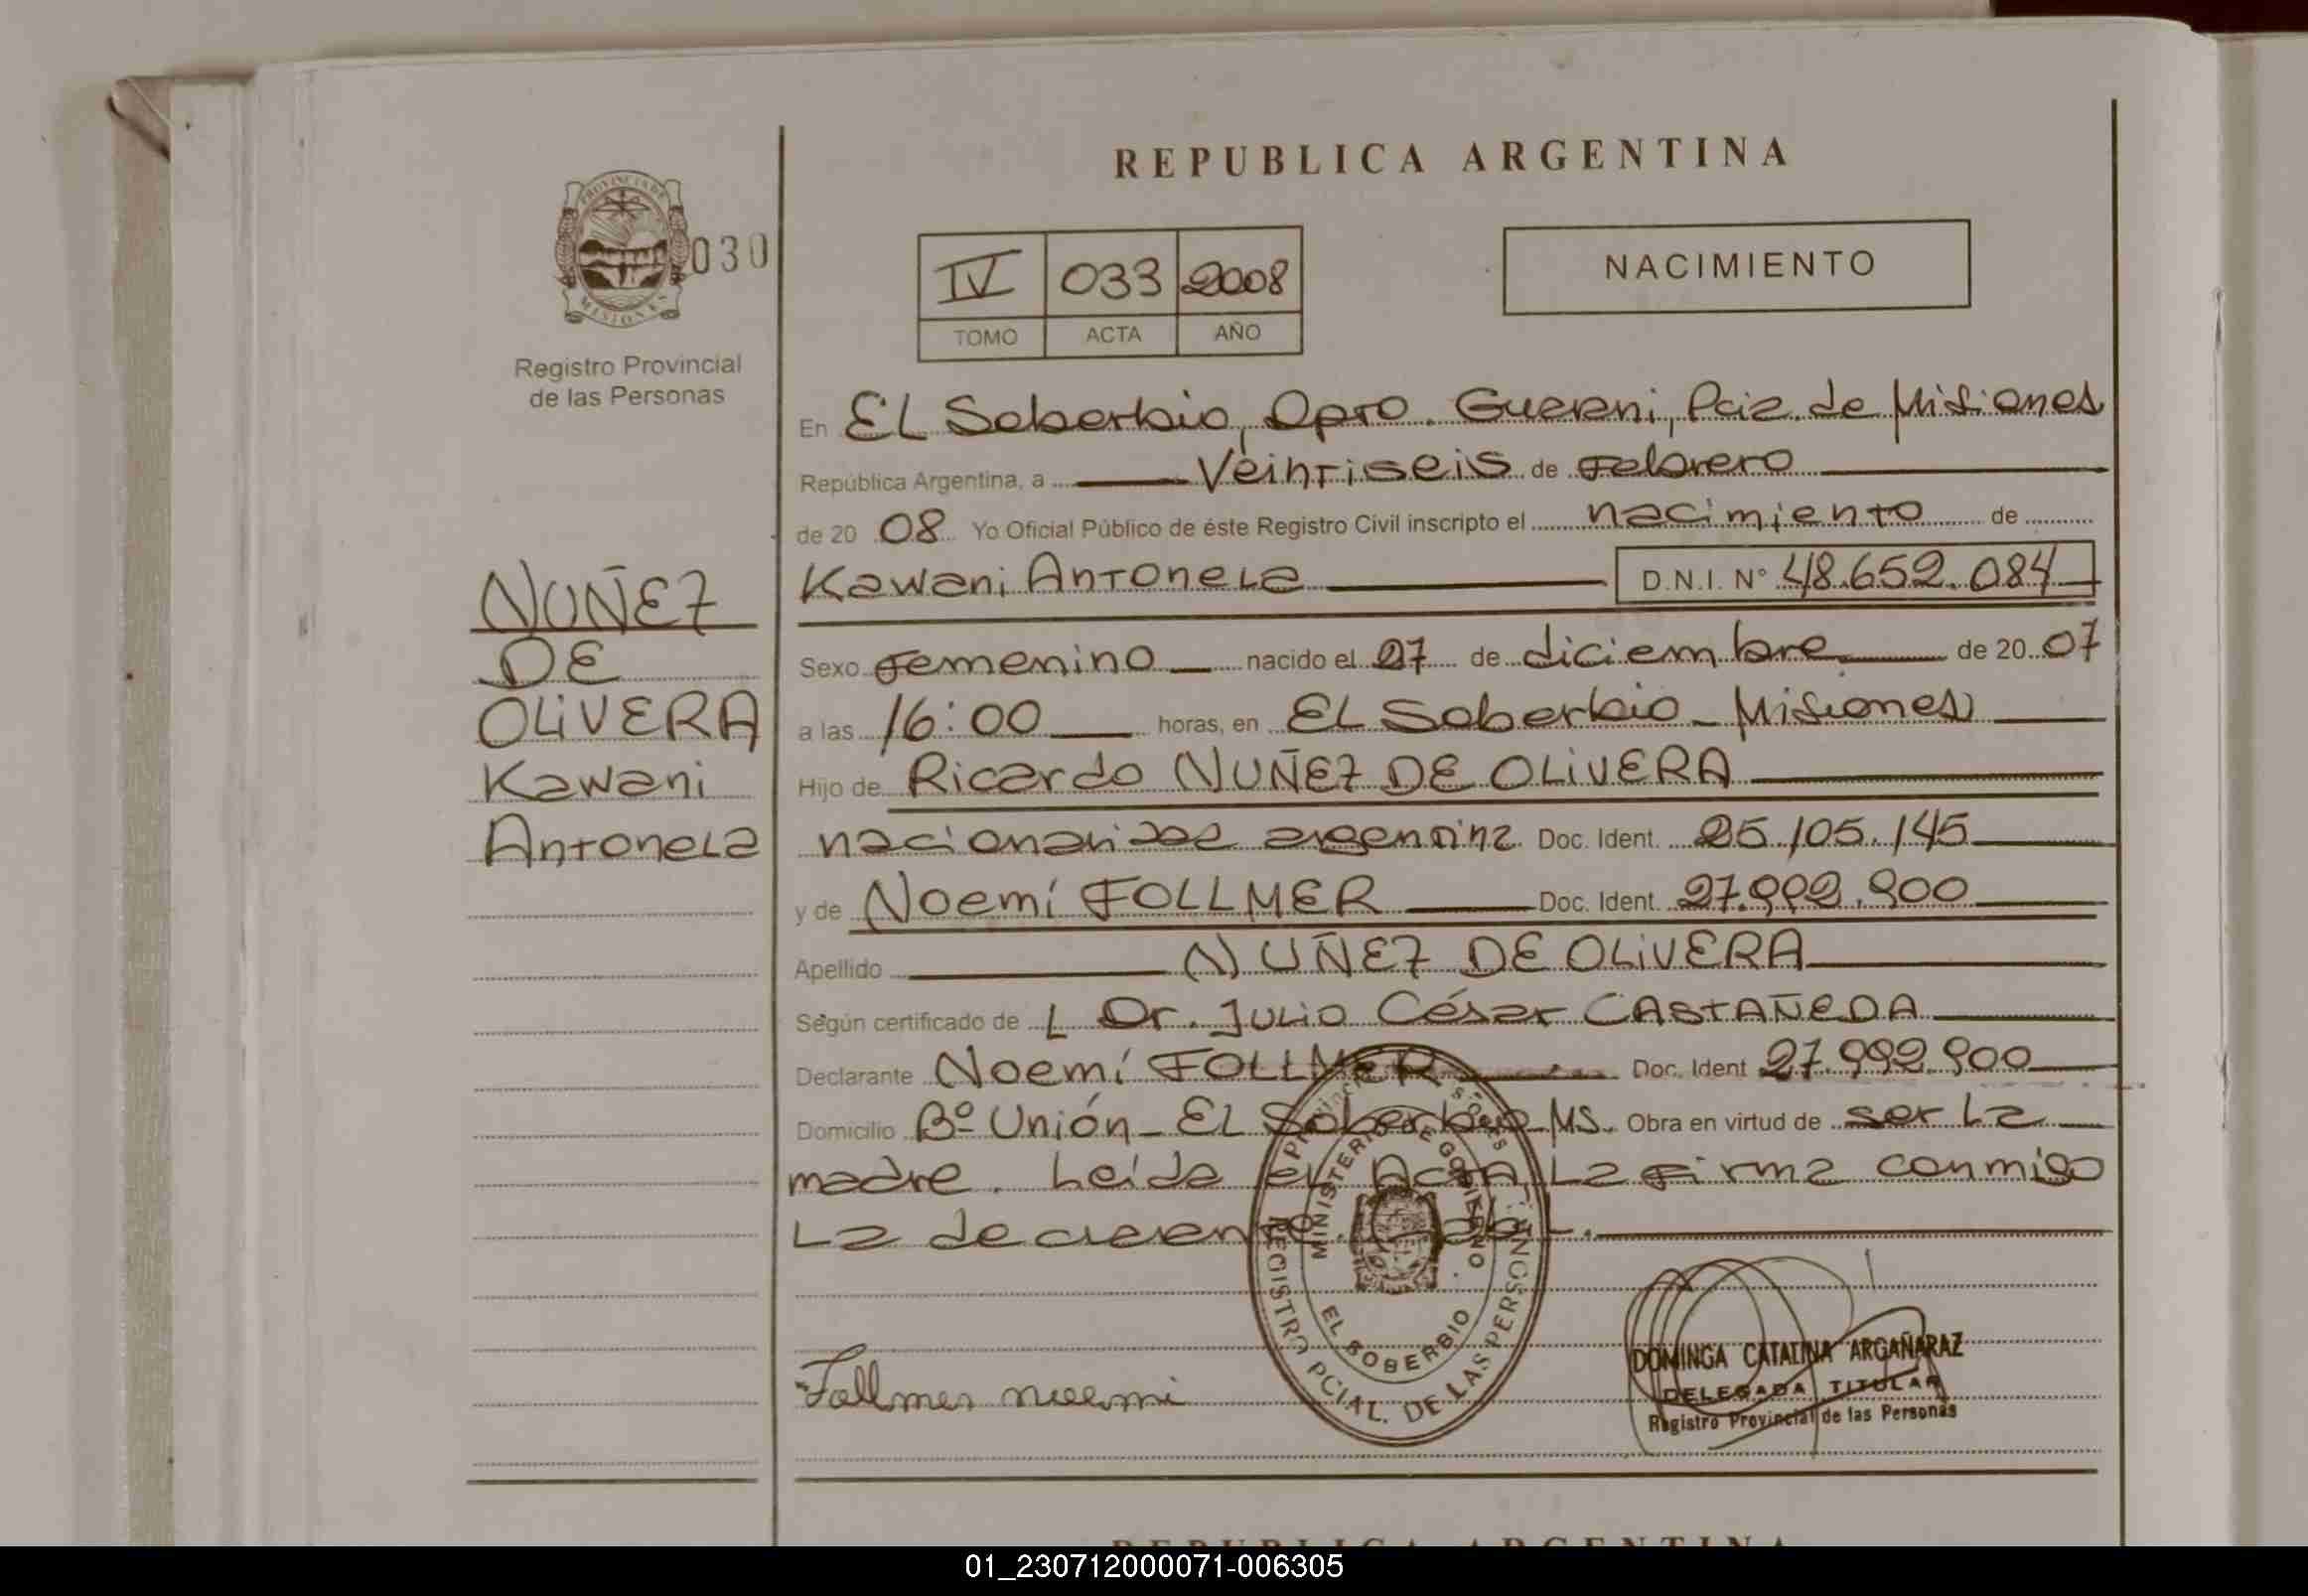 REPUBLICA ARGENTINA
PROVINCIA DE
MISIONES
030
Registro Provincial
de las Personas
IV 033 2008
TOMO ACTA AÑO
NACIMIENTO
En EL Soberbio, Dpto. Guarani, Pcia. de Misiones
República Argentina, a Veintiseis de Febrero
de 20 08 Yo Oficial Público de éste Registro Civil inscripto el nacimiento de
Kawani Antonela D.N.I. Nº 48.652.084
Sexo Femenino nacido el 27 de diciembre de 20 07
a las 16:00 horas, en EL Soberbio - Misiones
Hijo de Ricardo NUÑEZ DE OLIVERA
nacionalidad argentina Doc. Ident. 25.105.145
y de Noemí FOLLMER Doc. Ident. 27.992.900
Apellido NUÑEZ DE OLIVERA
Según certificado de L Dr. Julio César CASTAÑEDA
Declarante Noemí FOLLMER Doc. Ident 27.992.900
Domicilio Bº Unión - EL Soberbio - MS. Obra en virtud de ser La
madre. Leída el Acta, La Firma conmigo
La declarante.
NUÑEZ
DE
OLIVERA
Kawani
Antonela
Follmer noemi
MINISTERIO DE GOBIERNO
EL SOBERBIO
REGISTRO PCIAL. DE LAS PERSONAS
DOMINGA CATALINA ARGAÑARAZ
DELEGADA TITULAR
Registro Provincial de las Personas
REPUBLICA ARGENTINA
01_230712000071-006305